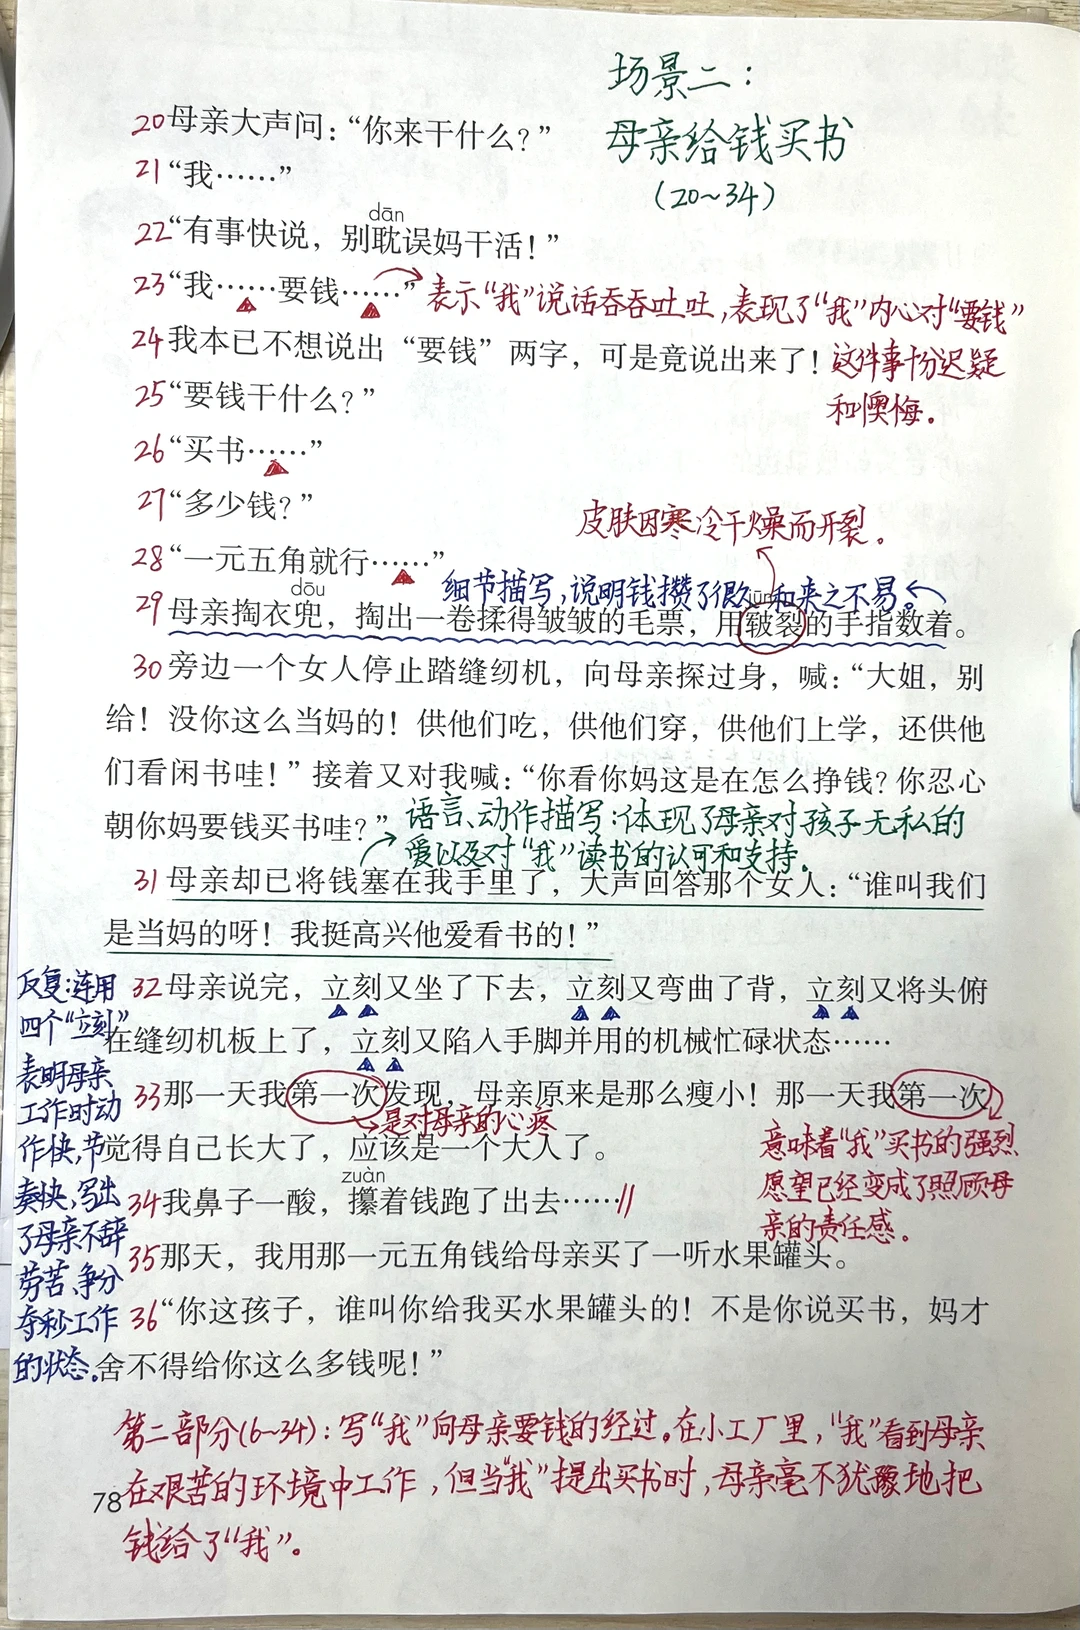 场景二：
母亲给钱买书
（20~34）
20母亲大声问：“你来干什么？”
21“我……”
dān
22“有事快说，别耽误妈干活！”
23“我……要钱……”表示“我”说话吞吞吐吐，表现了“我”内心对“要钱”
24我本已不想说出“要钱”两字，可是竟说出来了！这件事十分迟疑
和懊悔。
25“要钱干什么？”
26“买书……”
27“多少钱？”
皮肤因寒冷干燥而开裂。
28“一元五角就行……”
细节描写，说明钱攒了很久和来之不易。
dōu
jūn
29母亲掏衣兜，掏出一卷揉得皱皱的毛票，用皲裂的手指数着。
30旁边一个女人停止踏缝纫机，向母亲探过身，喊：“大姐，别
给！没你这么当妈的！供他们吃，供他们穿，供他们上学，还供他
们看闲书哇！”接着又对我喊：“你看你妈这是在怎么挣钱？你忍心
朝你妈要钱买书哇？”
语言、动作描写：体现了母亲对孩子无私的
爱以及对“我”读书的认可和支持。
31母亲却已将钱塞在我手里了，大声回答那个女人：“谁叫我们
是当妈的呀！我挺高兴他爱看书的！”
反复：连用
四个“立刻”
表明母亲
工作时动
作快，节
奏快，写出
了母亲不辞
劳苦、争分
夺秒工作
的状态。
32母亲说完，立刻又坐了下去，立刻又弯曲了背，立刻又将头俯
在缝纫机板上了，立刻又陷入手脚并用的机械忙碌状态……
33那一天我第一次发现，母亲原来是那么瘦小！那一天我第一次
是对母亲的心疼
觉得自己长大了，应该是一个大人了。
意味着“我”买书的强烈
愿望已经变成了照顾母
亲的责任感。
zuàn
34我鼻子一酸，攥着钱跑了出去……//
35那天，我用那一元五角钱给母亲买了一听水果罐头。
36“你这孩子，谁叫你给我买水果罐头的！不是你说买书，妈才
舍不得给你这么多钱呢！”
第二部分（6~34）：写“我”向母亲要钱的经过。在小工厂里，“我”看到母亲
在艰苦的环境中工作，但当“我”提出买书时，母亲毫不犹豫地把
钱给了“我”。
78